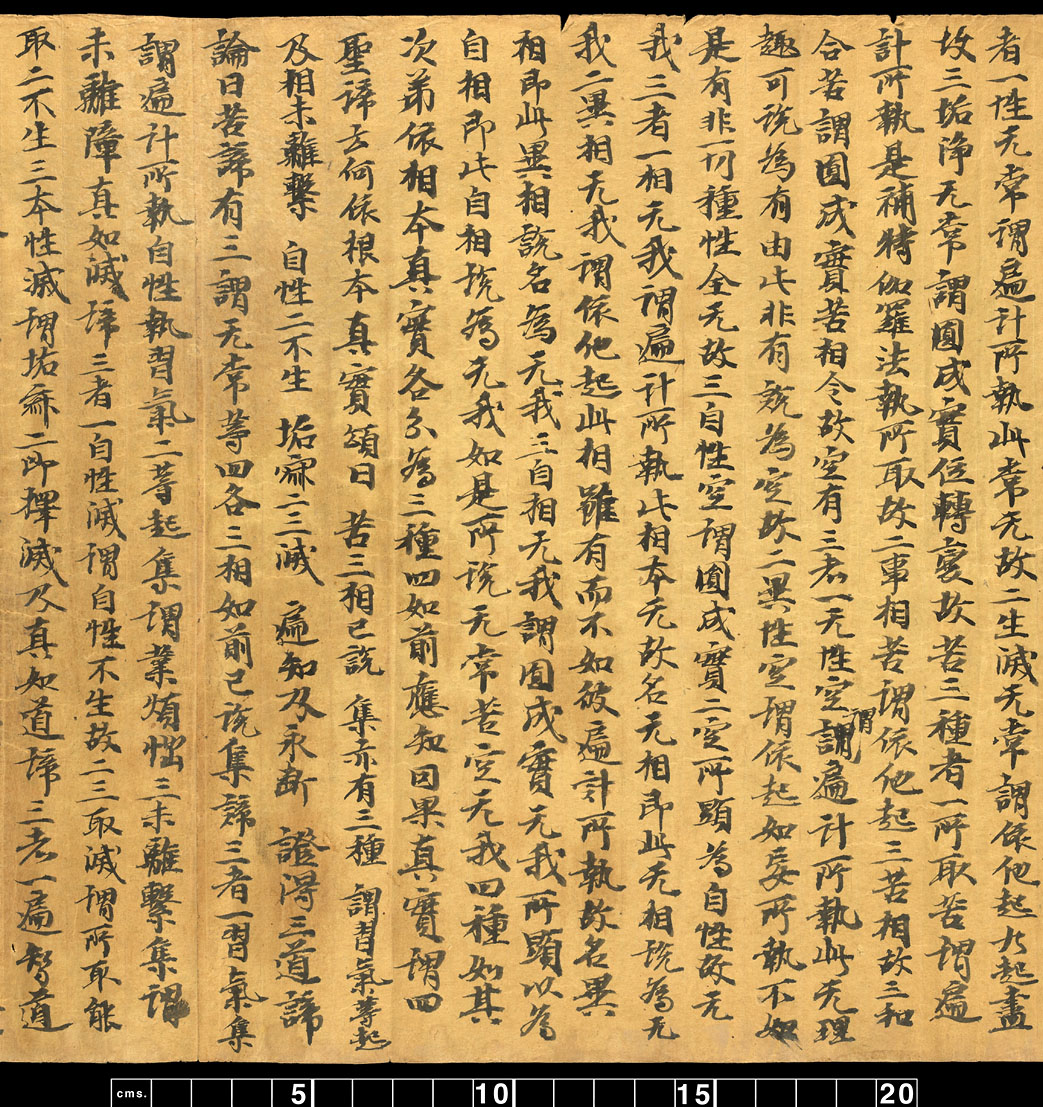 者一性无常謂遍計所執此常无故二生滅无常謂依他起大起盡
故三垢淨无常謂圓成實位轉變故苦三種者一所取苦謂遍
計所執是補特伽羅法執所取故二事相苦謂依他起三苦相故三和
合苦謂圓成實苦相令故空有三者一无性空謂遍計所執此无理
謂
趣可說為有由此非有說為空故二異性空謂依起如妄所執不如
是有非一切種性全无故三自性空謂圓成實二空所顯為自性故无
我三者一相无我謂遍計所執此相本无故名无相即此无相說為无
我二異相无我謂依他起此相雖有而不如彼遍計所執故名異
相即此異相說名為无我三自相无我謂圓成實无我所顯以為
自相即此自相說為无我如是所說无常苦空无我四種如其
次第依相本真實各分為三種四如前應知因果真實謂四
聖諦云何依根本真實頌曰 苦三相已說 集亦有三種 謂習氣等起
及相未離繫 自性二不生 垢寂二三滅 遍知及永斷 證得三道諦
論曰苦諦有三謂无常等四各三相如前已說集諦三者一習氣集
謂遍計所執自性執習氣二等起集謂業煩惱三未離繫集謂
未離障真如滅諦三者一自性滅謂自性不生故二二取滅謂所取能
取二不生三本性滅謂垢寂二即擇滅及真如道諦三者一遍智道
cms. 5 10 15 20